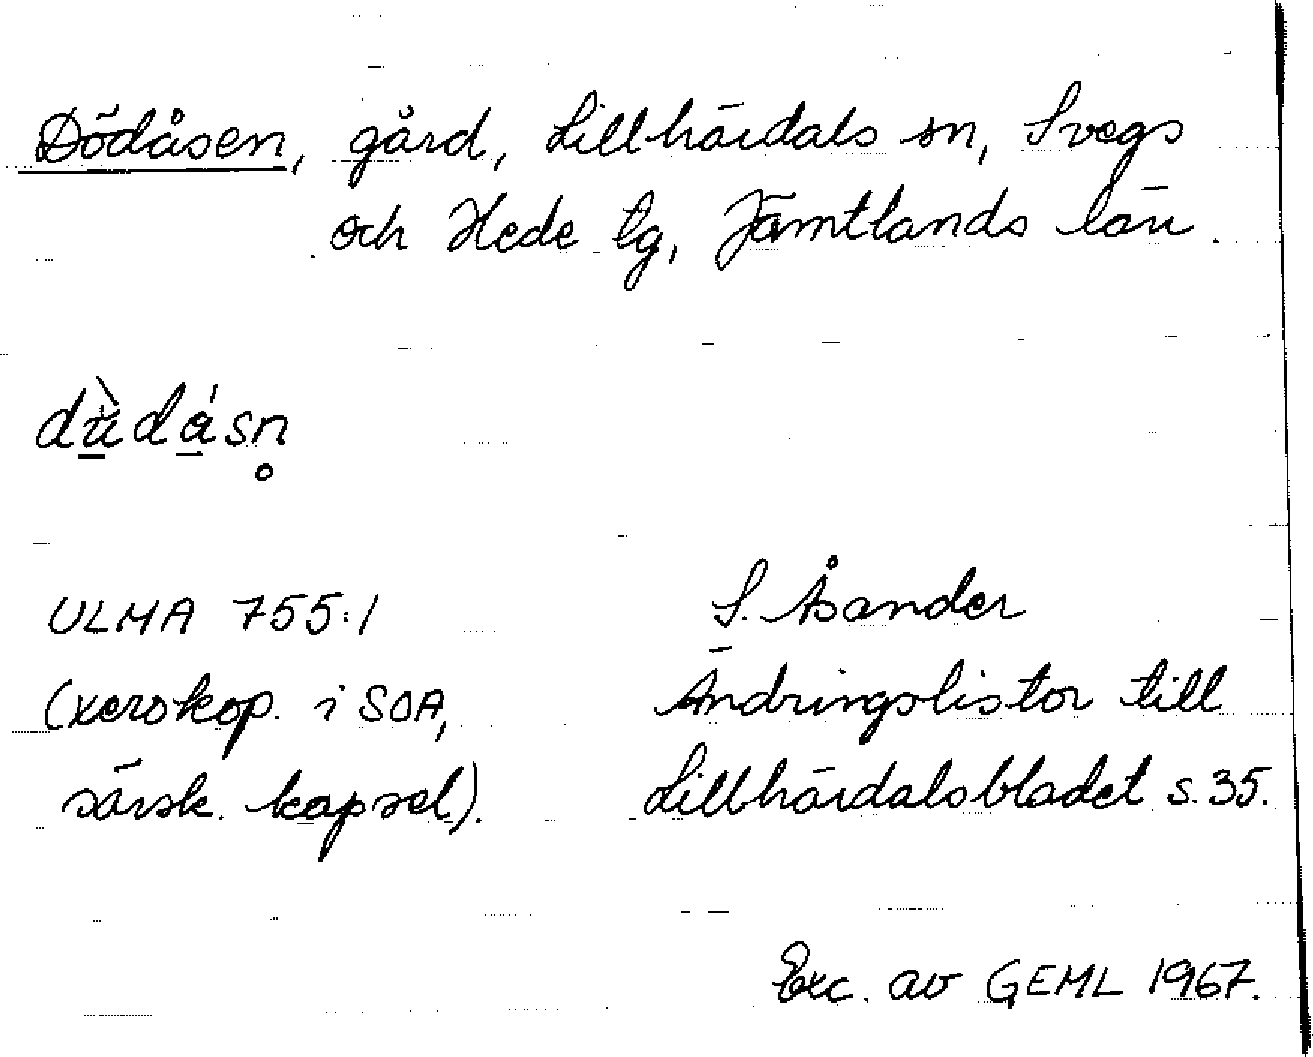 Dödåsen, gård, Lillhärdals sn, Svegs
och Hede tg, Jämtlands län.
dùdásn̥
ULMA 755:1
(xerokop. i SOA,
särsk. kapsel).
S. Åsander
Ändringslistor till
Lillhärdalsbladet s. 35.
Exc. av GEML 1967.